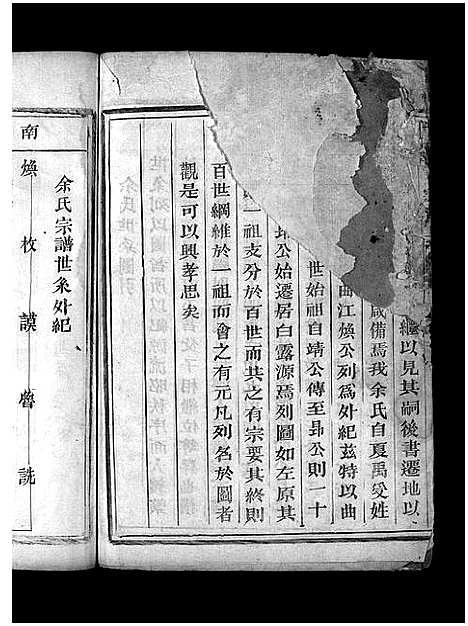 繼以見其嗣後書遷地以
咸備焉我余氏自夏禹受姓
曲江煥公列為外紀茲特以曲
世始祖自靖公傳至昻公則一十
昻公始遷居白露源焉列圖如左原其
一祖支分於百世而共之有宗要其終則
百世綱維於一祖而會之有元凡列名於圖者
觀是可以興孝思矣
余氏宗譜世系外紀
南 煥 枚 謨 魯 詵